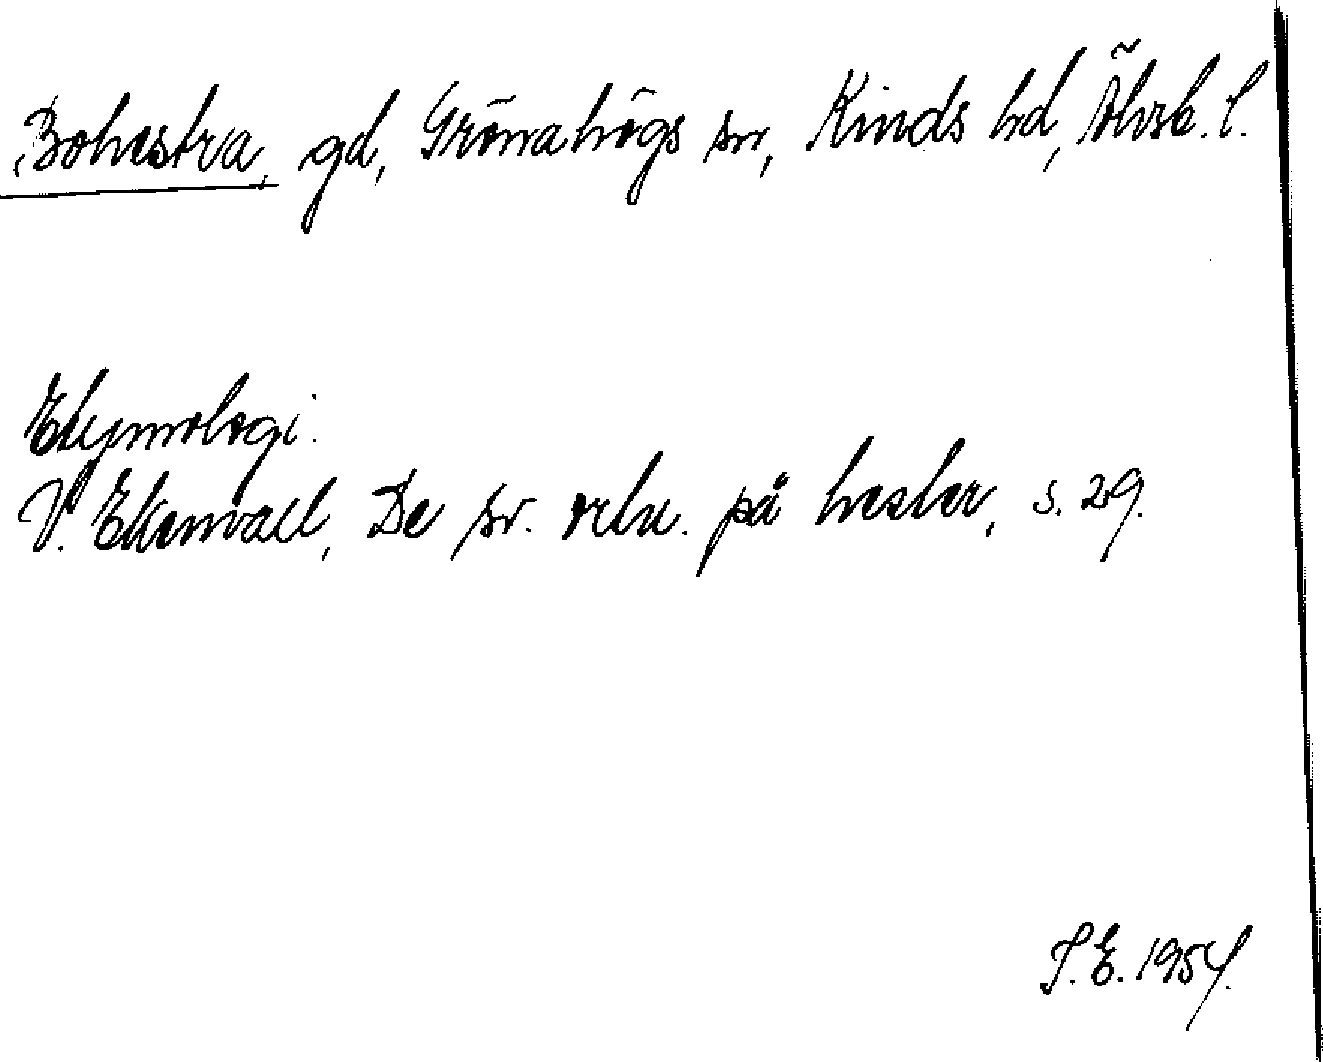 Bohestra, gd, Grönahögs sn, Kinds hd, Älvsb. l.
Etymologi.
V. Ekenvall, De sv. ortn. på hester, s. 29.
S. E. 1954.